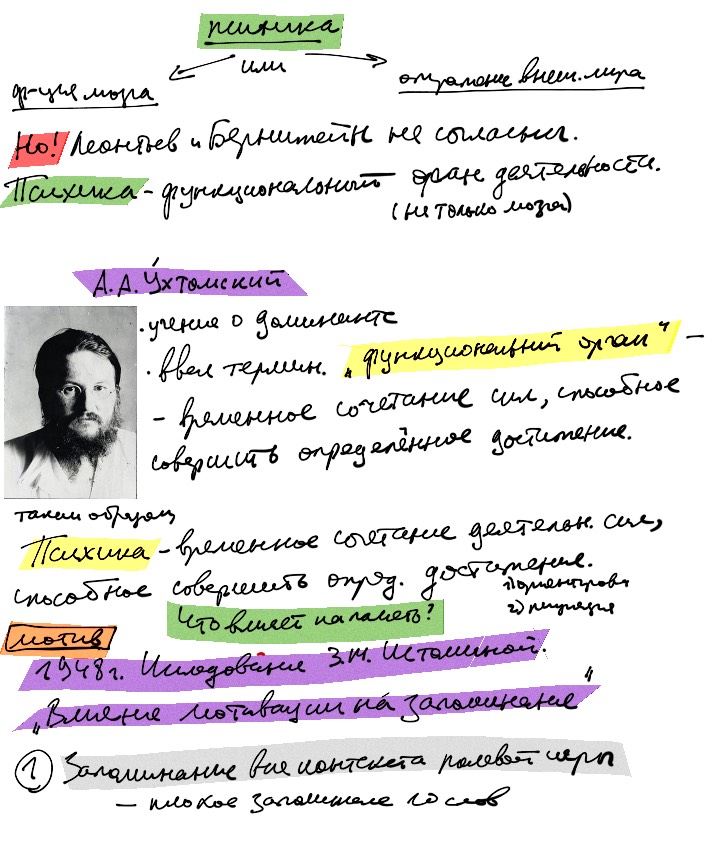 психика
или
ф-ция мозга
отражение внеш. мира
Но! Леонтьев и Бернштейн не согласны.
Психика - функциональный орган деятельности.
(не только мозга)
А.А. Ухтомский
· учение о доминанте
· ввел термин „функциональный орган" -
- временное сочетание сил, способное
совершить определённое достижение.
таким образом
Психика - временное сочетание деятельн. сил,
способное совершить опред. достижение.
1) ориентировка
2) регуляция
Что влияет на память?
мотив
1948г. Исследование З.М. Истоминой.
„Влияние мотивации на запоминание"
1 Запоминание вне контекста ролевой игры
- плохое запоминание 10 слов